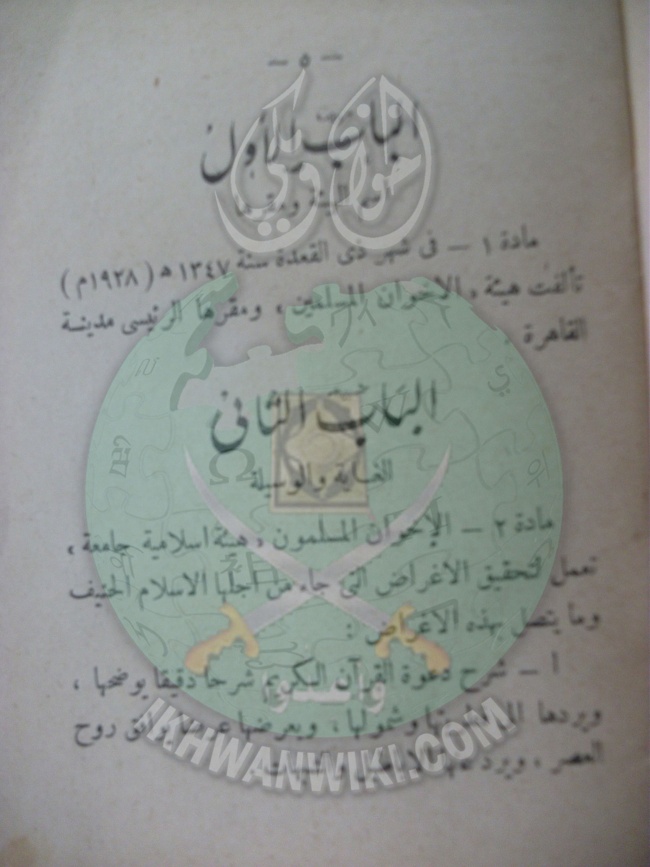 — ٥ —
الباب الأول
اسم الهيئة ومقرها
مادة ١ — فى شهر ذى القعدة سنة ١٣٤٧ ه ( ١٩٢٨م )
تألفت هيئة « الإخوان المسلمين » ومقرها الرئيسى مدينة
القاهرة
الباب الثانى
الغاية والوسيلة
مادة ٢ — الإخوان المسلمون « هيئة اسلامية جامعة »
تعمل لتحقيق الاغراض التى جاء من أجلها الاسلام الحنيف
وما يتصل بهذه الاغراض :
أ — شرح دعوة القرآن الكريم شرحا دقيقا يوضحها ،
ويردها إلى وشمولها ، ويعرضها عرضا يوافق روح
العصر ، ويرد عنها الأباطيل والشبهات .
إخوان ويكي
وأعدوا
IKHWANWIKI.COM